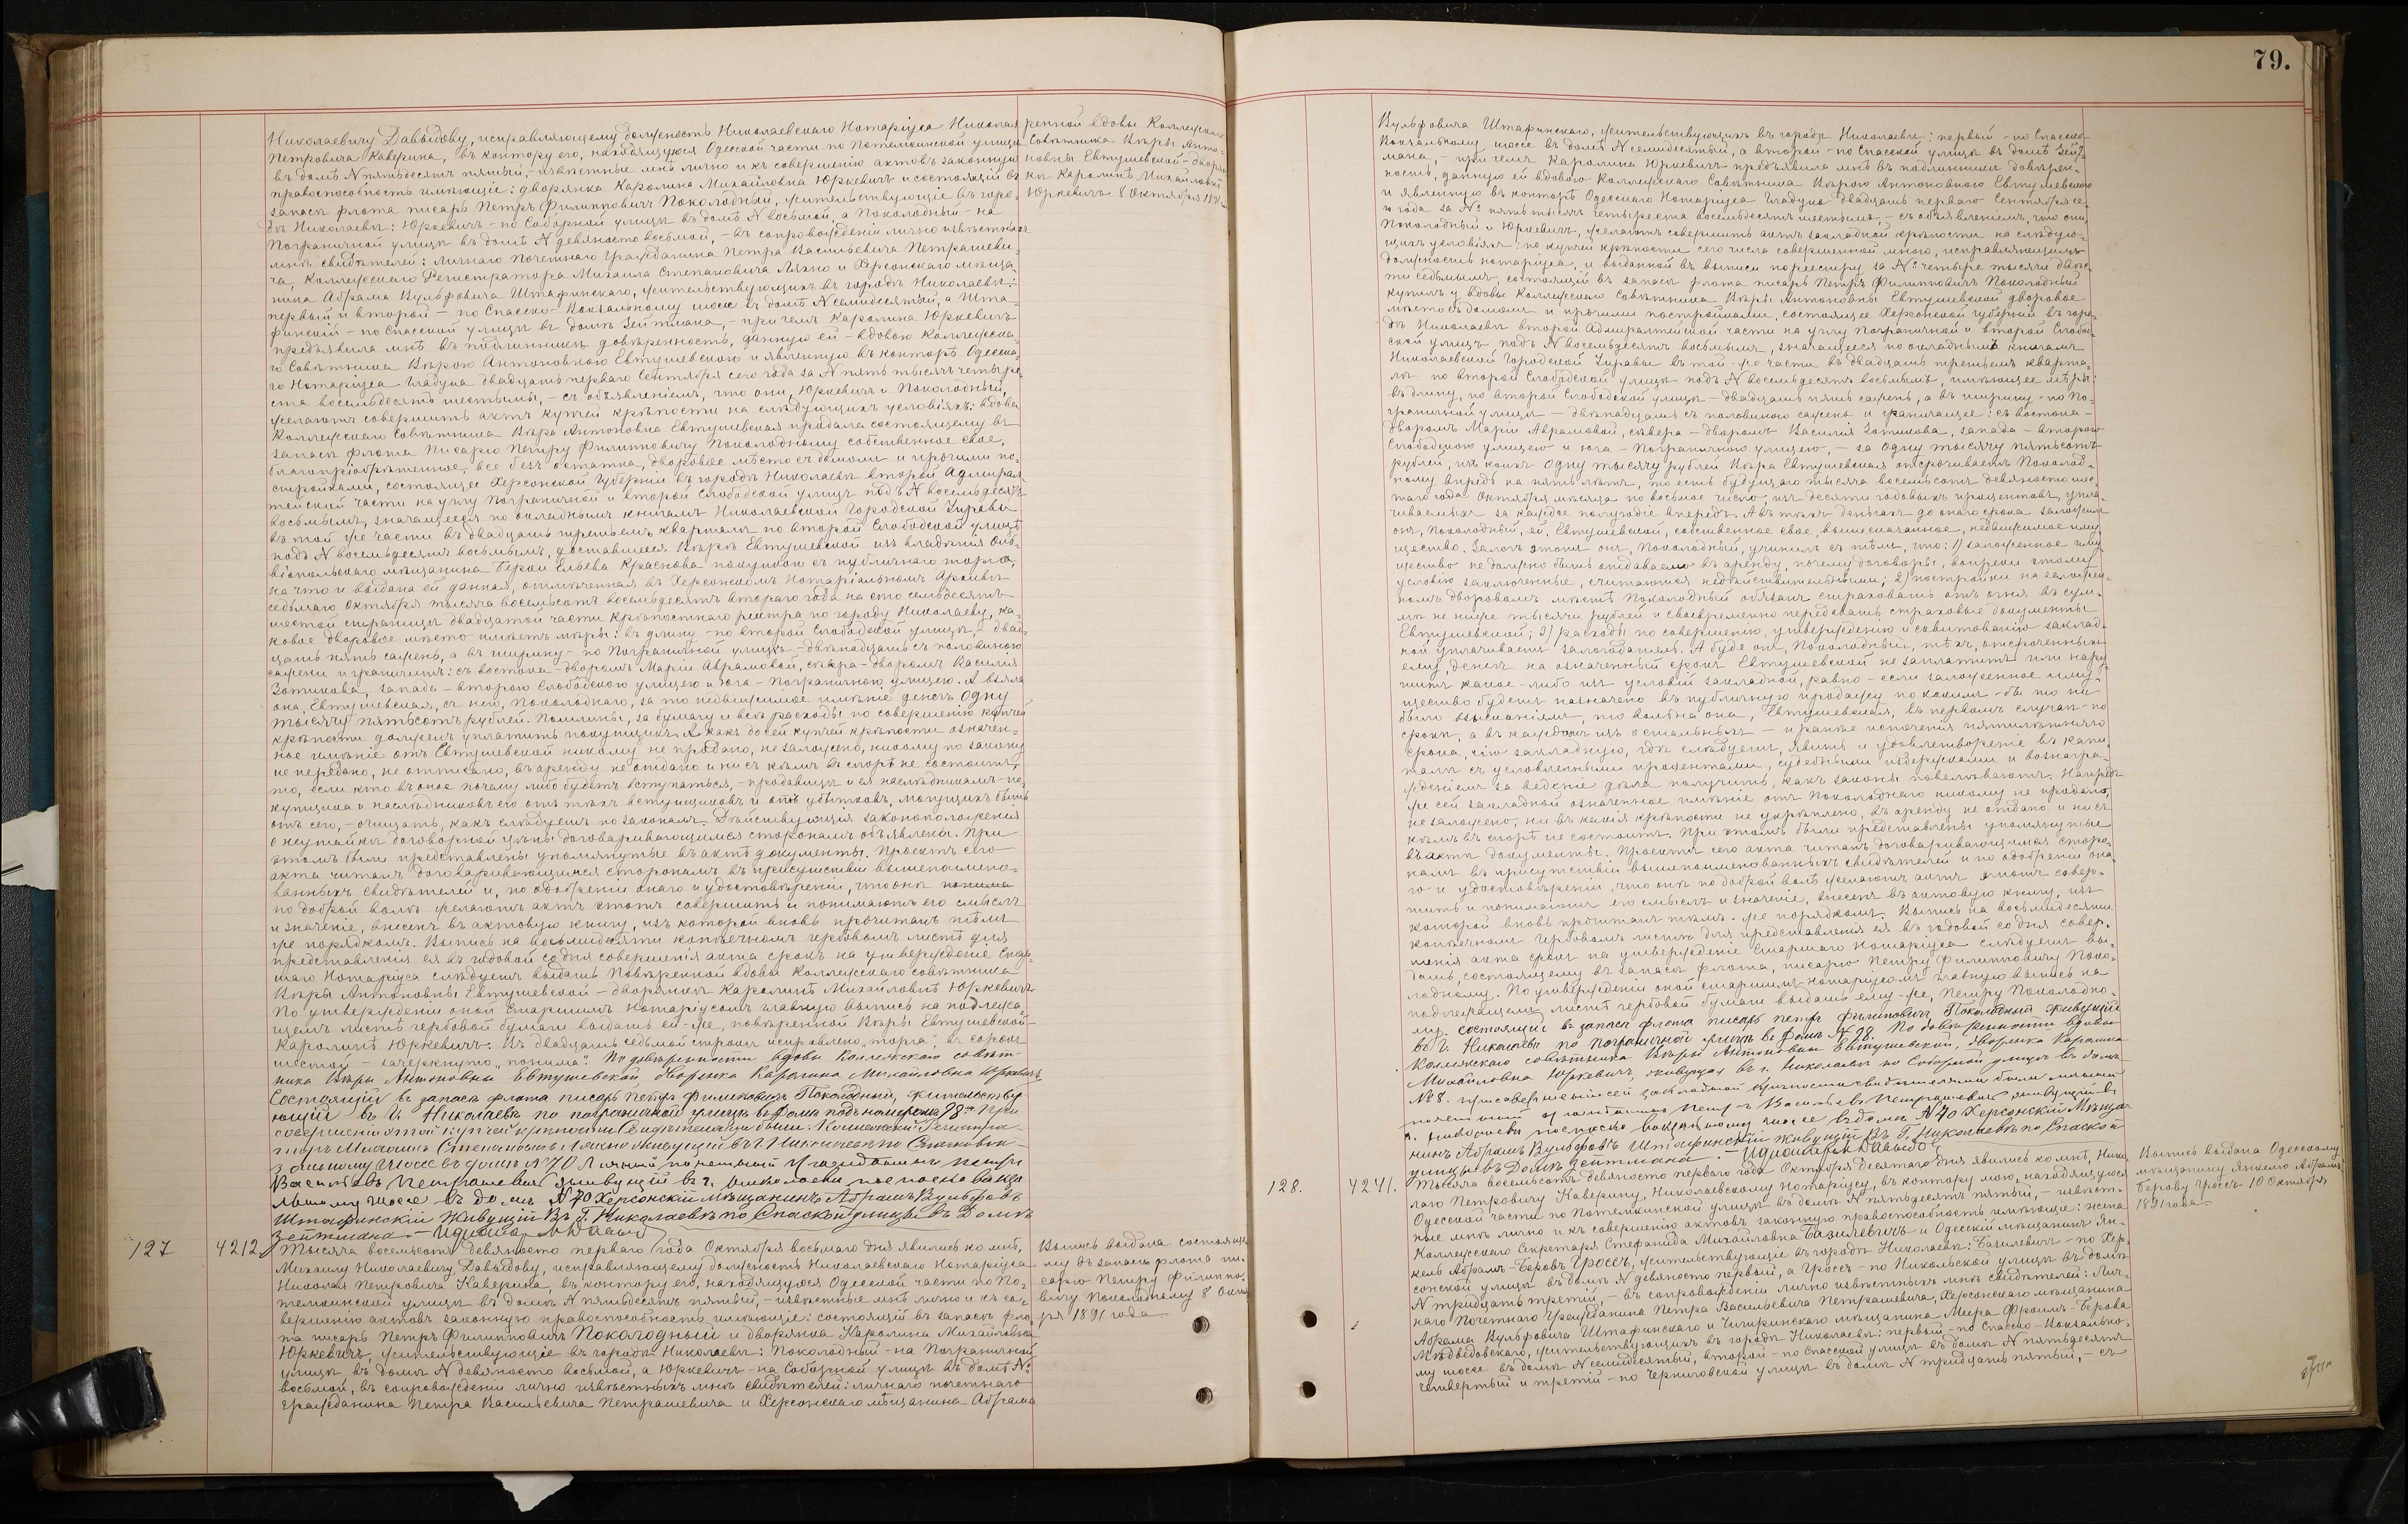 79.
Николаевичу Давыдову, исправляющему должность Николаевскаго Нотаріуса Николая
Петровича Каверина, въ контору его, находящуюся Одесской части по Потемкинской улицѣ
въ домѣ N пятьдесятъ пятый,- извѣстные мнѣ лично и къ совершенію актовъ законную
правоспособность имѣющіе: дворянка Каролина Михайловна Юркевичъ и состоящій въ
запасѣ флота писарь Петръ Филипповичъ Поколодный, жительствующіе въ горо-
дѣ Николаевѣ: Юркевичъ - по Соборной улицѣ въ домѣ N восьмой, а Поколодный - на
Пограничной улицѣ въ домѣ N девяносто восьмой, - въ сопровожденіи лично извѣстныхъ
мнѣ свидѣтелей: личнаго Почетнаго Гражданина Петра Васильевича Петрашеви-
ча, Коллежскаго Регистратора Михаила Степановича Ляхно и Херсонскаго мѣща-
нина Абрама Вульфовича Штафинскаго, жительствующихъ въ городѣ Николаевѣ:
первый и второй - по Спасско-Вокзальному шоссе въ домѣ N семидесятый, а Шта-
финскій - по Спасской улицѣ въ домѣ Зейтмана, - при чемъ Каролина Юркевичъ
предъявила мнѣ въ подлинникѣ довѣренность, данную ей - вдовою Коллежска-
го Совѣтника Вѣрою Антоновною Евтушевскою и явленную въ конторѣ Одесска-
го Нотаріуса Гладуна двадцать перваго Сентября сего года за N пять тысячъ четыре-
ста восемьдесятъ шестымъ, - съ объявленіемъ, что они, Юркевичъ и Поколодный,
желаютъ совершить актъ купчей крѣпости на слѣдующихъ условіяхъ: вдова
Коллежскаго Совѣтника Вѣра Антоновна Евтушевская продала состоящему въ
запасѣ флота Писарю Петру Филипповичу Поколодному собственное свое,
благопріобрѣтенное, все безъ остатка, дворовое мѣсто съ домомъ и прочими по-
стройками, состоящее Херсонской Губерніи въ городѣ Николаевѣ второй Адмирал-
тейской части на углу Пограничной и второй Слободской улицъ подъ N восемьдесятъ
восьмымъ, значащееся по окладнымъ книгамъ Николаевской Городской Управы
въ той же части въ двадцать третьемъ кварталѣ по второй Слободской улицѣ
подъ N восемьдесятъ восьмымъ, доставшееся Вѣрѣ Евтушевской изъ владѣнія Оль-
віопольскаго мѣщанина Берки Ельева Краснова покупкою съ публичнаго торга,
на что и выдана ей данная, отмѣченная въ Херсонскомъ Нотаріальномъ Архивѣ
седьмаго Октября тысяча восемьсотъ восемьдесятъ втораго года на сто семьдесятъ
шестой страницѣ двадцатой части крѣпостнаго реестра по городу Николаеву, ка-
ковое дворовое мѣсто имѣетъ мѣры: въ длину - по второй Слободской улицѣ, - двад-
цать пять сажень, а въ ширину - по Пограничной улицѣ - двѣнадцать съ половиною
сажени и граничитъ: съ востока - дворомъ Маріи Аврамовой, сѣвера - дворомъ Василія
Зотикова, запада - второю Слободскою улицею и юга - Пограничною улицею. А взяла
она, Евтушевская, съ него, Поколоднаго, за то недвижимое имѣніе денегъ одну
тысячу пятьсотъ рублей. Пошлины, за бумагу и всѣ расходы по совершенію купчей
крѣпости долженъ уплатить покупщикъ. А какъ до сей купчей крѣпости означен-
ное имѣніе отъ Евтушевской никому не продано, не заложено, никому по закону
не передано, не отписано, въ аренду не отдано и ни съ кѣмъ въ спорѣ не состоитъ,
то, если кто въ оное почему либо будетъ вступаться, - продавицѣ и ея наслѣдникамъ - по-
купщика и наслѣдниковъ его отъ тѣхъ вступщиковъ и отъ убытковъ, могущихъ быть
отъ сего, - очищать, какъ слѣдуетъ по законамъ. Дѣйствующія законоположенія
о неутайкѣ договорной цѣны договаривающимся сторонамъ объявлены. При
этомъ были представлены упомянутые въ актѣ документы. Проектъ сего
акта читанъ договаривающимся сторонамъ въ присутствіи вышепоимено-
ванныхъ свидѣтелей и, по одобреніи онаго и удостовѣреніи, что онѣ понима
по доброй волѣ желаютъ актъ этотъ совершить и понимаютъ его смыслъ
и значеніе, внесенъ въ актовую книгу, изъ которой вновь прочитанъ тѣмъ
же порядкомъ. Выпись на восьмидесяти копѣечномъ гербовомъ листѣ для
представленія ея въ годовой со дня совершенія акта срокъ на утвержденіе Стар-
шаго Нотаріуса слѣдуетъ выдать Повѣренной вдовы Коллежскаго совѣтника
Вѣры Антоновны Евтушевской - дворянкѣ Каролинѣ Михайловнѣ Юркевичъ
По утвержденіи оной Старшимъ нотаріусомъ главную выпись на подлежа-
щемъ листѣ гербовой бумаги выдать ей-же, повѣренной Вѣры Евтушевской -
Каролинѣ Юркевичъ. Въ двадцать седьмой строкѣ исправлено „торга", въ сорокъ
шестой - зачеркнуто „понима". По довѣренности вдовы Коллежскаго совѣт-
ника Вѣры Антоновны Евтушевской, дворянка Каролина Михайловна Юркевичъ
Состоящій въ запасѣ флота писарь Петръ Филиповичъ Поколодный, жительству-
ющій въ г. Николаевѣ по пограничной улицѣ въ домѣ подъ номеромъ 98мъ При
совершеніи этой купчей крѣпости Свидѣтелями были: Коллежскій Регистра-
торъ Михаилъ Степановичъ Ляхно живущій въ г. Николаевѣ по Спасковок-
зальному Шоссе въ домѣ № 70 Личный почетный Гражданинъ Петръ
Васильевъ Петрашевичъ живущій въ г. Николаеве по спаско вакза
льному шоссе въ домѣ N 70 Херсонскій мѣщанинъ Абрамъ Вульфовъ
Штафинскій Живущій Въ Г. Николаевѣ по Спаской улицы въ Домѣ
Зейтмана.
ренной вдовы Коллежскаго
Совѣтника Вѣры Анто-
новны Евтушевской - дворян
кѣ Каролинѣ Михайловнѣ
Юркевичъ 8 Октября 1891г.
127
4212
Тысяча восемьсотъ девяносто перваго года Октября восьмаго дня явились ко мнѣ,
Михаилу Николаевичу Давыдову, исправляющему должность Николаевскаго Нотаріуса
Николая Петровича Каверина, въ контору его, находящуюся Одесской части по По-
темкинской улицѣ въ домѣ N пятьдесятъ пятый, - извѣстные мнѣ лично и къ со-
вершенію актовъ законную правоспособность имѣющіе: состоящій въ запасѣ фло-
та писарь Петръ Филипповичъ Поколодный и дворянка Каролина Михайловна
Юркевичъ, жительствующіе въ городѣ Николаевѣ: Поколодный - на Пограничной
улицѣ въ домѣ N девяносто восьмой, а Юркевичъ - на Соборной улицѣ въ домѣ №
восьмой, въ сопровожденіи лично извѣстныхъ мнѣ свидѣтелей: личнаго почетнаго
гражданина Петра Васильевича Петрашевича и Херсонскаго мѣщанина Абрама
Выпись выдана состояще
му въ запасѣ флота пи-
сарю Петру Филиппо-
вичу Поколодному 8 Октяб
ря 1891 года
Вульфовича Штафинскаго, жительствующихъ въ городѣ Николаевѣ: первый - по Спасско-
Вокзальному шоссе въ домѣ N семидесятый, а второй - по Спасской улицѣ въ домѣ Зейт-
мана, - при чемъ Каролина Юркевичъ предъявила мнѣ въ подлинникѣ довѣрен-
ность, данную ей вдовою Коллежскаго Совѣтника Вѣрою Антоновною Евтушевскою
и явленную въ конторѣ Одесскаго Нотаріуса Гладуна двадцать перваго Сентября се-
го года за № пять тысячъ четыреста восемьдесятъ шестымъ, - съ объявленіемъ, что они,
Поколодный и Юркевичъ, желаютъ совершить актъ закладной крѣпости на слѣдую-
щихъ условіяхъ: по купчей крѣпости сего числа совершенной мною, исправляющимъ
должность нотаріуса, и выданной въ выписи по реестру за № четыре тысячи двѣс-
ти седьмымъ, состоящій въ запасѣ флота писарь Петръ Филипповичъ Поколодный
купилъ у вдовы Коллежскаго Совѣтника Вѣры Антоновны Евтушевской дворовое
мѣсто съ домомъ и прочими постройками, состоящее Херсонской губерніи въ горо-
дѣ Николаевѣ второй Адмиралтейской части на углу Пограничной и второй Слобод-
ской улицъ подъ N восемьдесятъ восьмымъ, значащееся по окладнымъ книгамъ
Николаевской Городской Управы въ той-же части въ двадцать третьемъ кварта-
лѣ по второй Слободской улицѣ подъ N восемьдесятъ восьмымъ, имѣющее мѣры:
въ длину, по второй Слободской улицѣ - двадцать пять сажень, а въ ширину - по По-
граничной улицѣ - двѣнадцать съ половиною сажень и граничащее: съ востока -
дворомъ Маріи Аврамовой, сѣвера - дворомъ Василія Зотикова, запада - второю
Слободскою улицею и юга - Пограничною улицею, - за одну тысячу пятьсотъ
рублей, изъ коихъ одну тысячу рублей Вѣра Евтушевская отсрочиваетъ Поколод-
ному впредь на пять лѣтъ, то есть будущаго тысяча восемьсотъ девяносто шес-
таго года Октября мѣсяца по восьмое число, изъ десяти годовыхъ процентовъ, упла-
чиваемыхъ за каждое полугодіе впередъ. А въ тѣхъ деньгахъ до онаго срока заложилъ
онъ, Поколодный, ей, Евтушевской, собственное свое, вышесказанное, недвижимое иму-
щество. Залогъ этотъ онъ, Поколодный, учинилъ съ тѣмъ, что: 1) заложенное иму-
щество не должно быть отдаваемо въ аренду, почему договоры, вопреки этому
условію заключенные, считаются недѣйствительными; 2) постройки на заложен-
номъ дворовомъ мѣстѣ Поколодный обязанъ страховать отъ огня въ сум-
мѣ не ниже тысячи рублей и своевременно передавать страховые документы
Евтушевской; 3) расходы по совершенію, утвержденію и сквитованію заклад-
ной уплачиваетъ залогодатель. А буде онъ, Поколодный, тѣхъ, отсроченныхъ
ему, денегъ на означенный срокъ Евтушевской не заплатитъ или нару-
шитъ какое-либо изъ условій закладной, равно - если заложенное иму-
щество будетъ назначено въ публичную продажу по какимъ-бы то ни
было взысканіямъ, то вольна она, Евтушевская, въ первомъ случаѣ - по
срокѣ, а въ каждомъ изъ остальныхъ - и ранѣе истеченія пятилѣтняго
срока, сію закладную, гдѣ слѣдуетъ, явить и удовлетвореніе въ капи-
талѣ съ условленными процентами, судебными издержками и вознагра-
жденіемъ за веденіе дѣла получить, какъ законы повелѣваютъ. Напредъ
же сей закладной означенное имѣніе отъ Поколоднаго никому не продано,
не заложено, ни въ какія крѣпости не укрѣплено, въ аренду не отдано и ни съ
кѣмъ въ спорѣ не состоитъ. При этомъ были представлены упомянутые
въ актѣ документы. Проектъ сего акта читанъ договаривающимся сторо-
намъ въ присутствіи вышепоименованныхъ свидѣтелей и по одобреніи она-
го и удостовѣреніи, что онѣ по доброй волѣ желаютъ актъ этотъ совер-
шить и понимаютъ его смыслъ и значеніе, внесенъ въ актовую книгу, изъ
которой вновь прочитанъ тѣмъ-же порядкомъ. Выпись на восьмидесяти
копѣечномъ гербовомъ листѣ для представленія ея въ годовой со дня совер-
шенія акта срокъ на утвержденіе Старшаго Нотаріуса слѣдуетъ вы-
дать, состоящему въ запасѣ флота, писарю Петру Филипповичу Поко-
лодному. По утвержденіи оной старшимъ нотаріусомъ главную выпись на
подлежащемъ листѣ гербовой бумаги выдать ему-же, Петру Поколодно-
му. состоящій въ запасѣ флота писарь Петръ Филиповичъ Поколодный живущій
въ г. Николаевѣ по Пограничной улицѣ въ домѣ № 98. По довѣренности вдовы
Коллежскаго совѣтника Вѣры Антоновны Евтушевской, дворянка Каролина
Михайловна Юркевичъ, живущая въ г. Николаевѣ по Соборной улицѣ въ домѣ
№ 8. При совершеніи сей закладной крѣпости свидѣтелями были личный
почетный гражданинъ Петръ Васильевъ Петрашевичъ живущій в
г. николаеви по спаско вокзальному шоссе въ домѣ N 70 Херсонскій Мѣща-
нинъ Абрамъ Вульфовъ Штафинскій Живущій Въ Г. Николаевѣ по Спаской
улицы въ Домѣ Зейтмана.
128.
4241.
Тысяча восемьсотъ девяносто перваго года Октября десятаго дня явились ко мнѣ, Нико-
лаю Петровичу Каверину, Николаевскому Нотаріусу, въ контору мою, находящуюся
Одесской части по Потемкинской улицѣ въ домѣ N пятьдесятъ пятый, - извѣст-
ные мнѣ лично и къ совершенію актовъ законную правоспособность имѣющіе: жена
Коллежскаго Секретаря Стефанида Михайловна Базилевичъ и Одесскій мѣщанинъ Ян-
кель Абрамъ-Беровъ Гроссъ, жительствующіе въ городѣ Николаевѣ: Базилевичъ - по Хер-
сонской улицѣ въ домѣ N девяносто первый, а Гроссъ - по Никольской улицѣ въ домѣ
N тридцать третій, - въ сопровожденіи лично извѣстныхъ мнѣ свидѣтелей: Лич-
наго Почетнаго Гражданина Петра Васильевича Петрашевича, Херсонскаго мѣщанина
Абрама Вульфовича Штафинскаго и Чигиринскаго мѣщанина Меера Фроимъ-Берова
Медведовскаго, жительствующихъ въ городѣ Николаевѣ: первый - по Спасско-Вокзально-
му шоссе въ домѣ N семидесятый, второй - по Спасской улицѣ въ домѣ N пятьдесятъ
четвертый и третій - по Черниговской улицѣ въ домѣ N тридцать пятый, - съ
Выпись выдана Одесскому
мѣщанину Янкелю Абрамъ
Берову Гроссъ 10 Октября
1891 года.